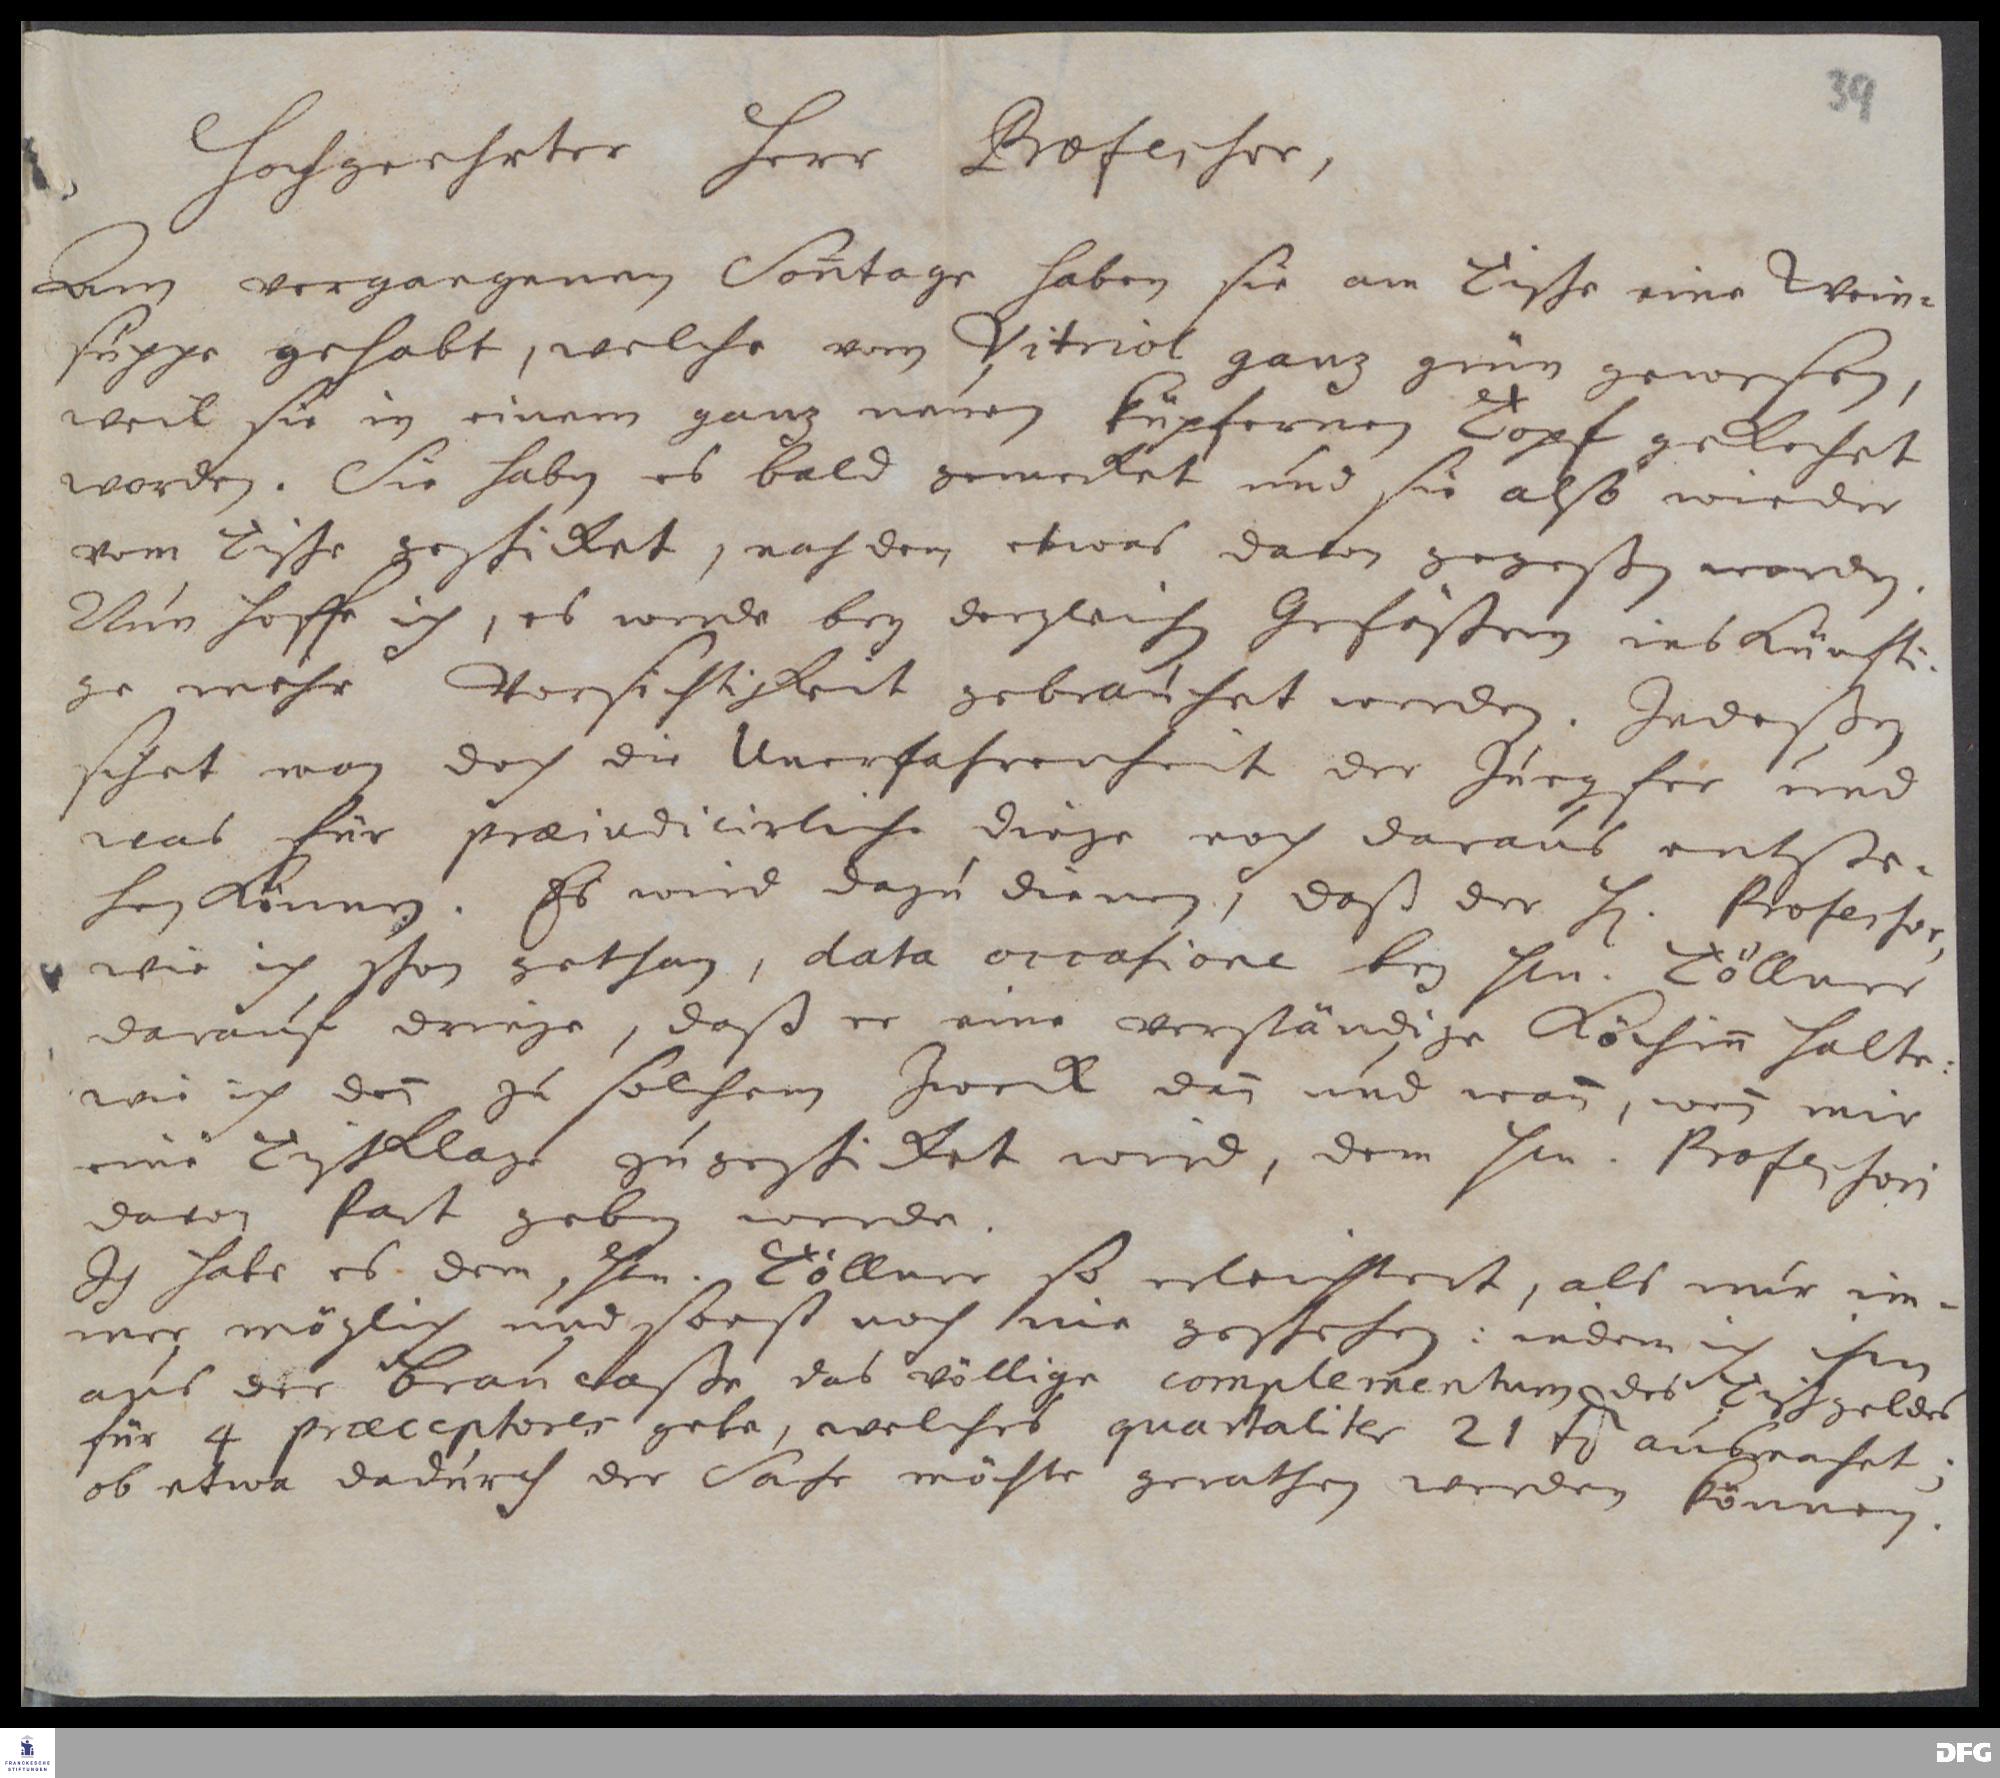 39
Hochgeehrter Herr Professor,
Am vergangenen Soñtage haben sie am Tische eine Wein-
suppe gehabt, welche vom Vitriol ganz grün gewesen,
weil sie in einem ganz neuen küpfernen Topf gekochet
worden. Sie haben es bald gemerket und sie also wieder
vom Tische geschicket, nachdem etwas davon gegeßen worden.
Nun hoffe ich, es werde bey dergleichen Gefäßen ins Künfti-
ge mehr Vorsichtigkeit gebrauchet werden. Indeßen
sihet man doch die Unerfahrenheit der Jungfer und
was für præiudicirliche dinge noch daraus entste-
hen können. Es wird dazu dienen, daß der H. Professor,
wie ich schon gethan, data occasione bey Hrn. Töllner
darauf dringe, daß er eine verständige Köchiñ halte:
wie ich deñ zu solchem Zweck dañ und wañ, weñ mir
eine Tischklage zugeschicket wird, dem Hrn. Professori
davon Part geben werde.
Ich habe es dem Hrn. Töllner so erleichtert, als nur im-
mer möglich und sonst noch nie geschehen: indem ich ihm
aus der Braucasse das völlige complementum des Tischgeldes
für 4 præceptores gebe, welches quartaliter 21 rthl ausmachet;
ob etwa dadurch der Sache möchte gerathen werden können.
FRANCKESCHE
STIFTUNGEN
DFG